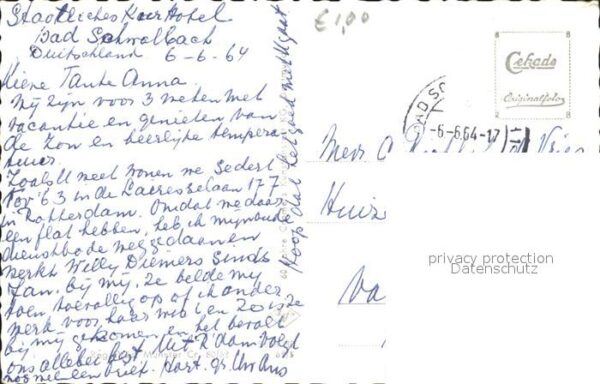 Staatliches Kur Hotel
Bad Schwalbach
Duitschland 6-6-64
€1,00
Lieve Tante Anna.
Wij zijn voor 3 weken met
vacantie en genieten van
de zon en heerlijke tempera
tuur.
Zoals U weet wonen we sedert
Nov '63 in de Lairesselaan 177
in Rotterdam. Omdat we daar
een flat hebben, heb ik mijn oude
dienstbode weggedaan en
werkt Willy Diemers sinds
Jan. bij mij. Ze belde mij
toen toevallig op of ik ander
werk voor haar wist en zo is ze
bij mij gekomen en het bevalt
ons allebei best. Uit R'dam volgt
nog wel een brief. Hart. gr.
Hoop dat het goed met U gaat
Cekade
Originalfoto
-6-6.64-17
Mevr
Huize
Va
privacy protection
Datenschutz